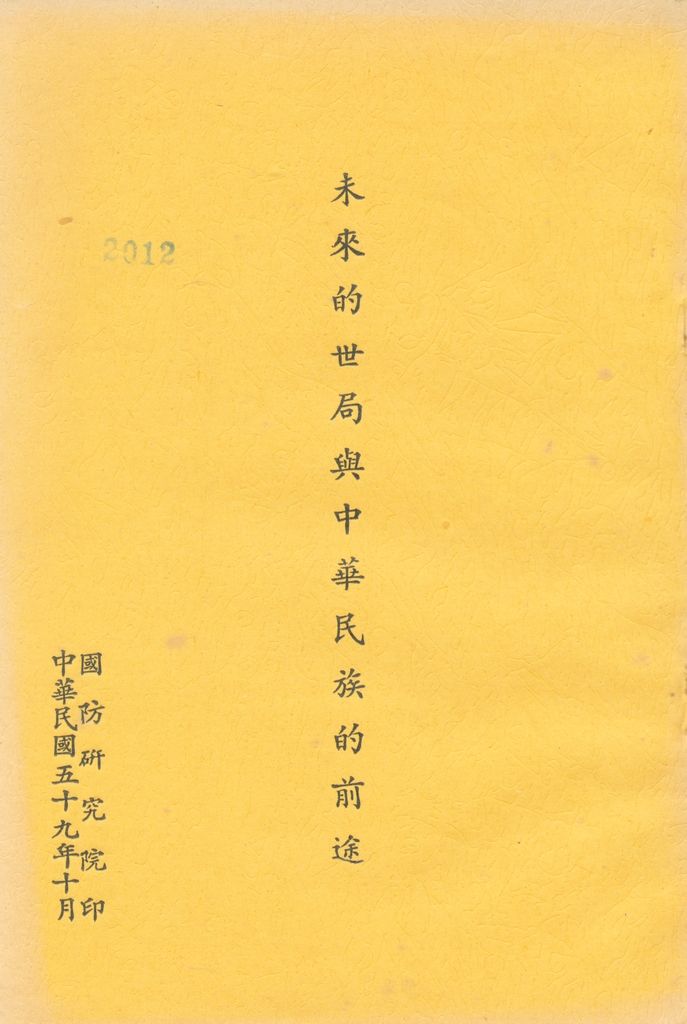 未來的世局與中華民族的前途
2012
國防研究院印
中華民國五十九年十月